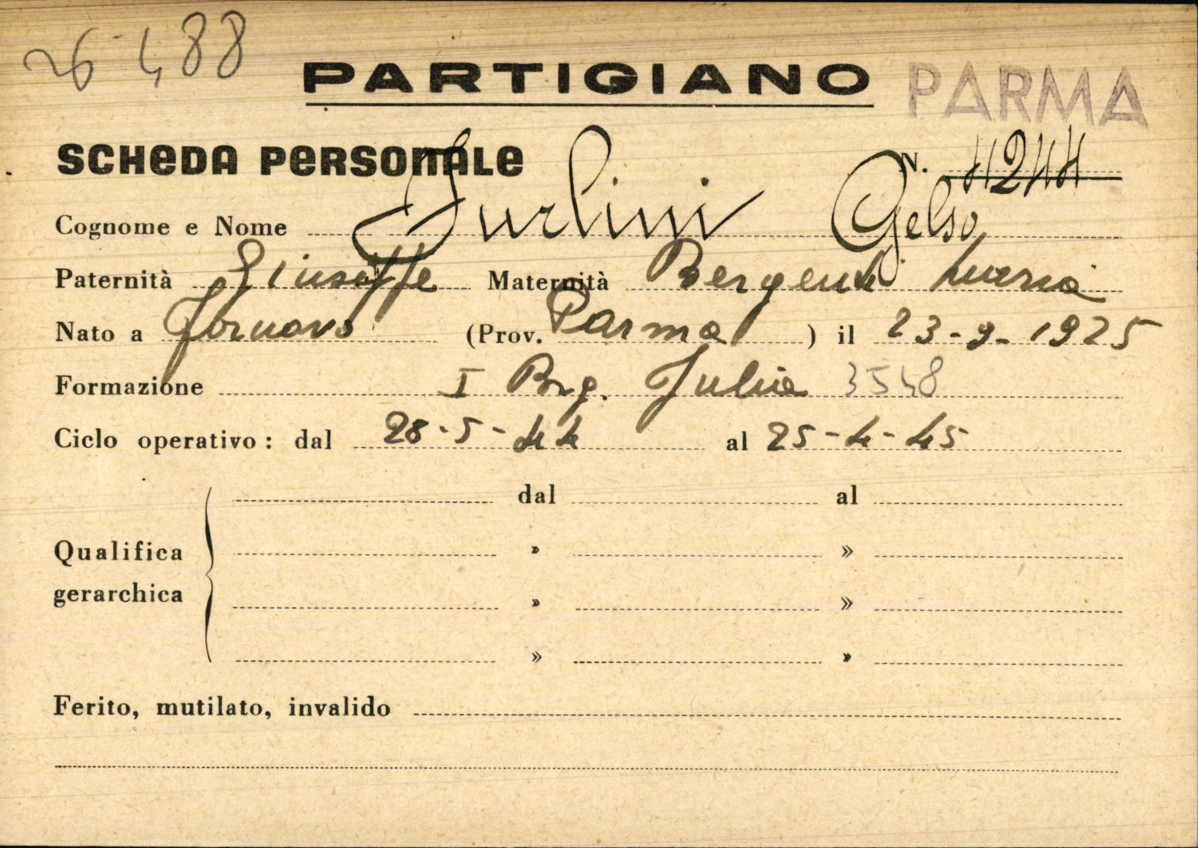 26488
PARTIGIANO PARMA
SCHEDA PERSONALE N. 41244
Cognome e Nome Furlini Gelso
Paternità Giuseppe Maternità Bergenti Maria
Nato a Fornovo (Prov. Parma) il 23-9-1925
Formazione I Brg. Julia 3548
Ciclo operativo: dal 28-5-44 al 25-4-45
dal al
Qualifica » »
gerarchica » »
» »
Ferito, mutilato, invalido